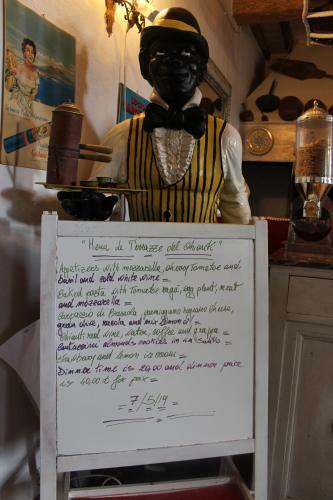 "Menu da Terrazze del Chianti"
Appetizers with mozzarella, cherry Tomatoe and
basil and cold white wine =
Baked pasta with Tomatoe ragù, egg plant, meat
and mozzarella =
Carpaccio di Bresaola, parmigiano regiano cheese,
green olive, rucola and mix lemon oil =
Chianti red wine, water, coffee and grappa =
Cantuccini almonds cookies in vin santo =
Strawberry and lemon ice cream =
Dinner time is 20,00 and dinner price
is 40,00 € for pax =
= 7/5/19 =